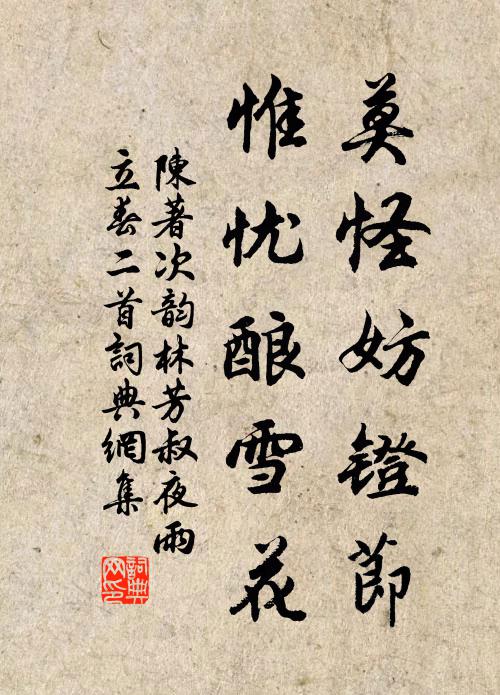 莫怪妨镫節
惟忧酿雪花
陳著次韵林芳叔夜雨
立春二首詞典網集
詞典
网印